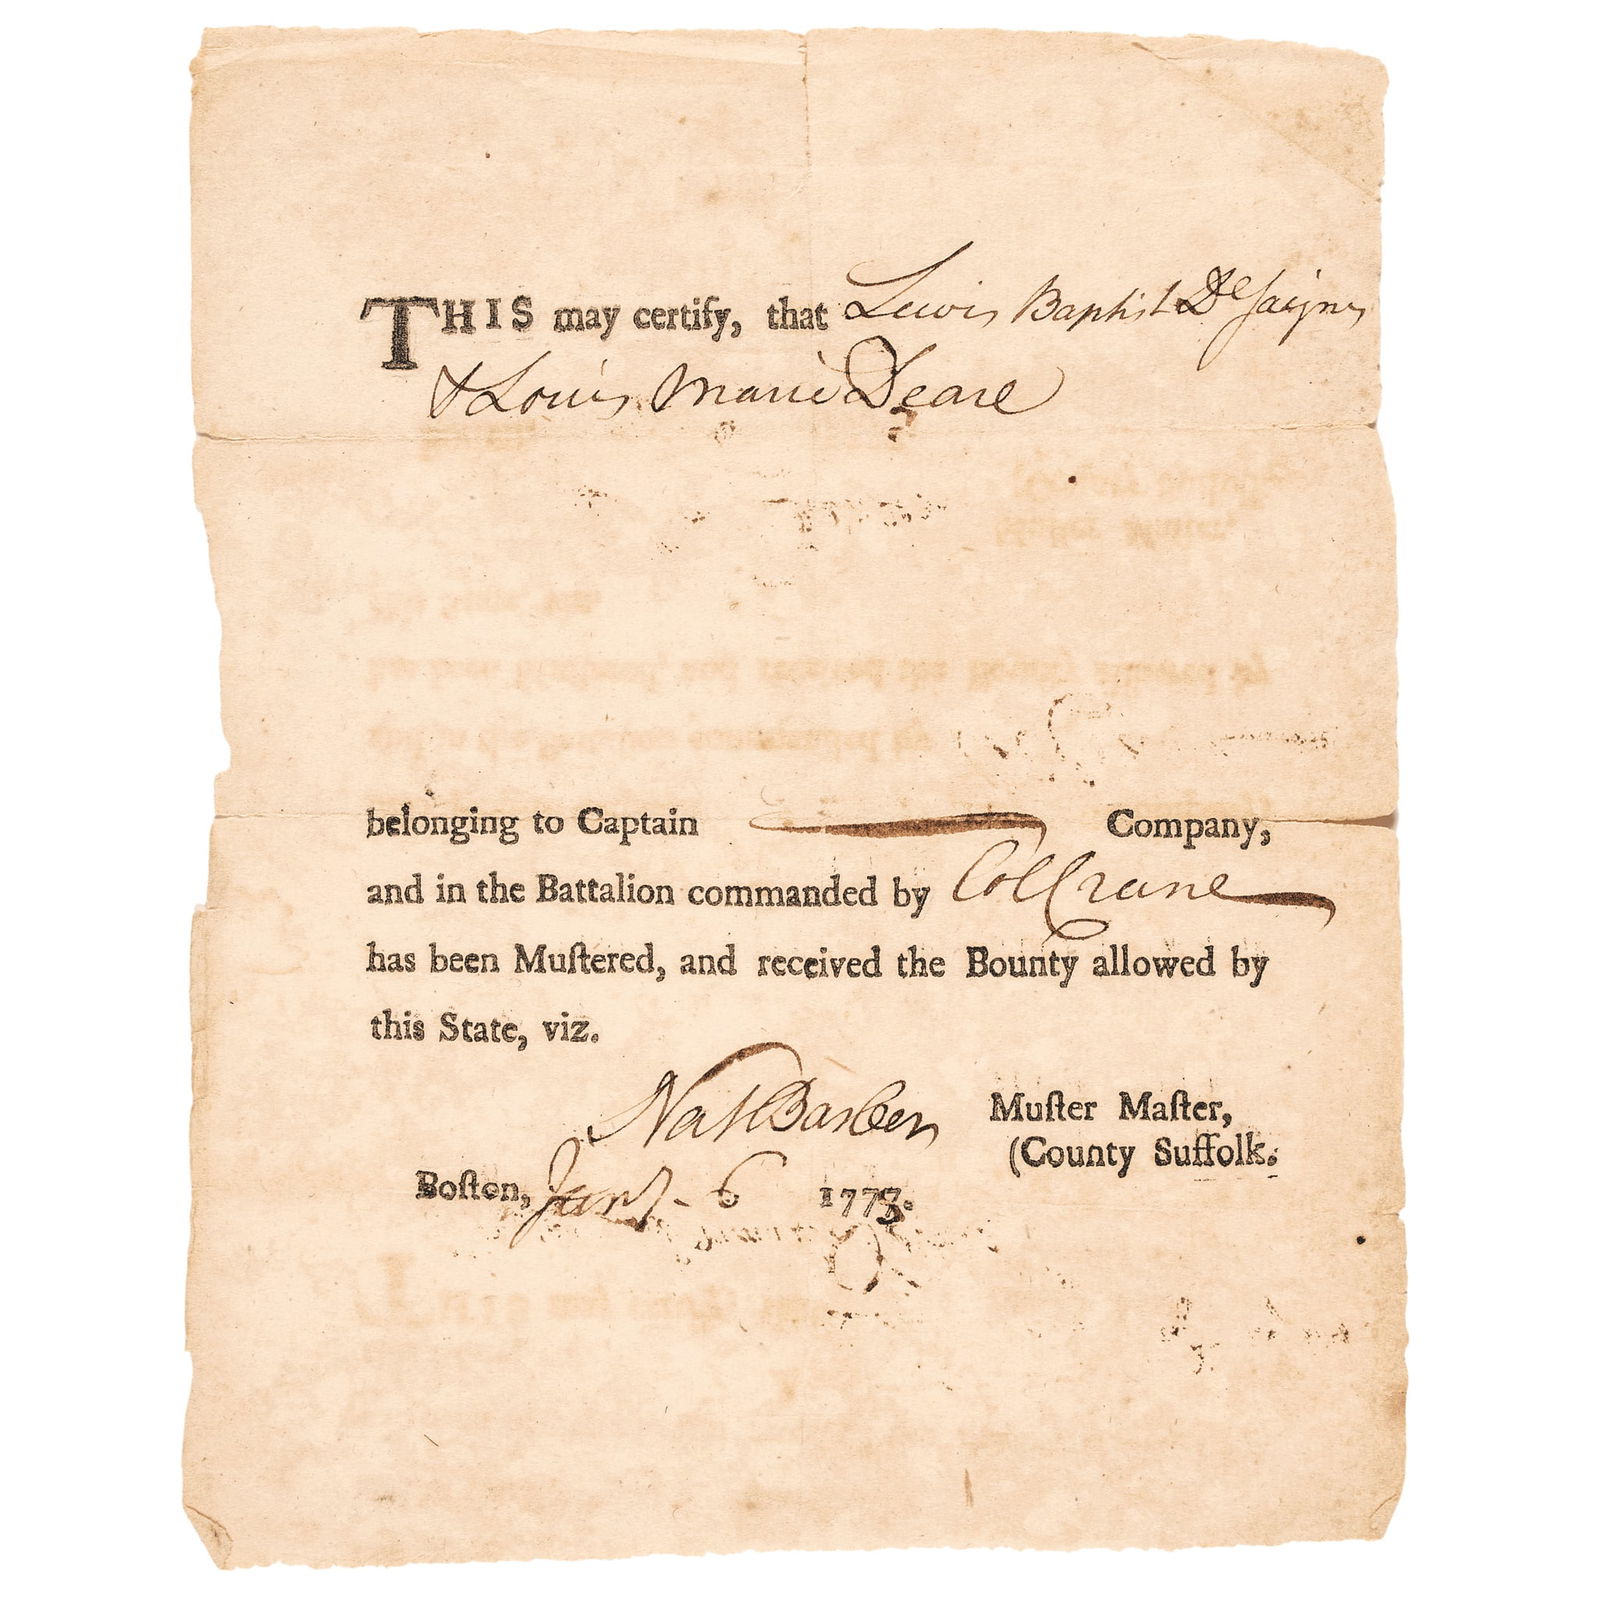 THIS may certify, that Lewis Baptist DeSaignes
& Louis Marie Deare
belonging to Captain — Company,
and in the Battalion commanded by Col Crane
has been Muſtered, and received the Bounty allowed by
this State, viz.
Nat Barber Muſter Maſter,
(County Suffolk.
Boſton, Jany - 6 1778.